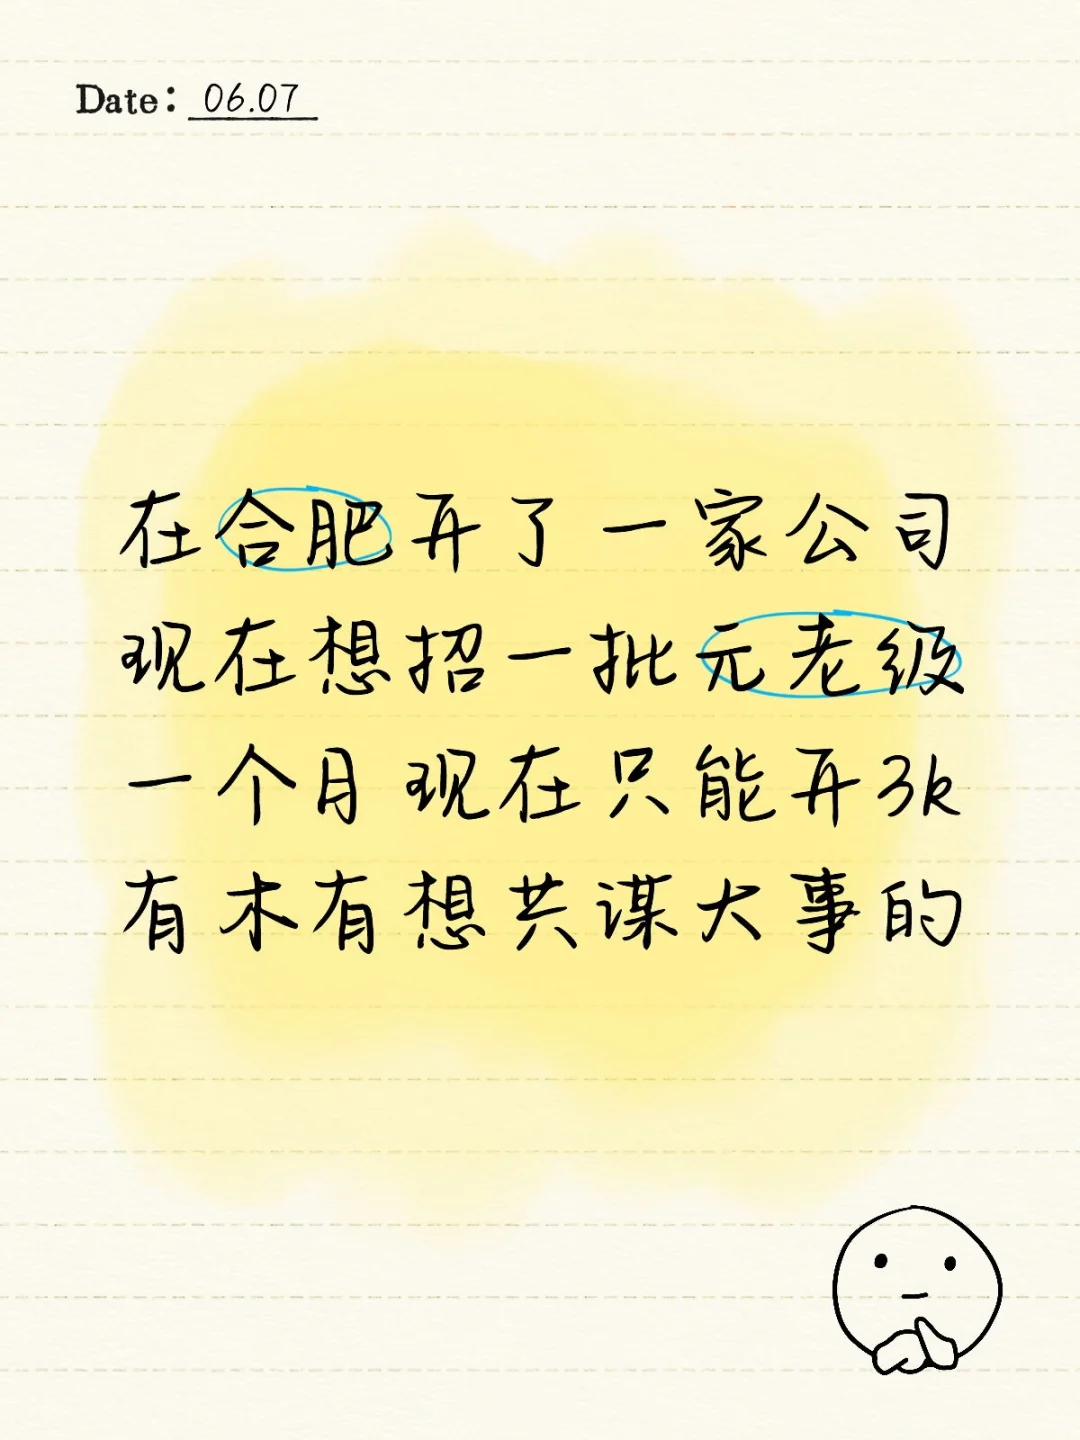 Date: 06.07
在合肥开了一家公司
现在想招一批元老级
一个月现在只能开3k
有木有想共谋大事的